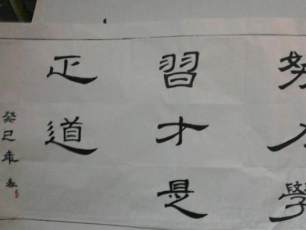 努力學
習才是
正道
癸巳年